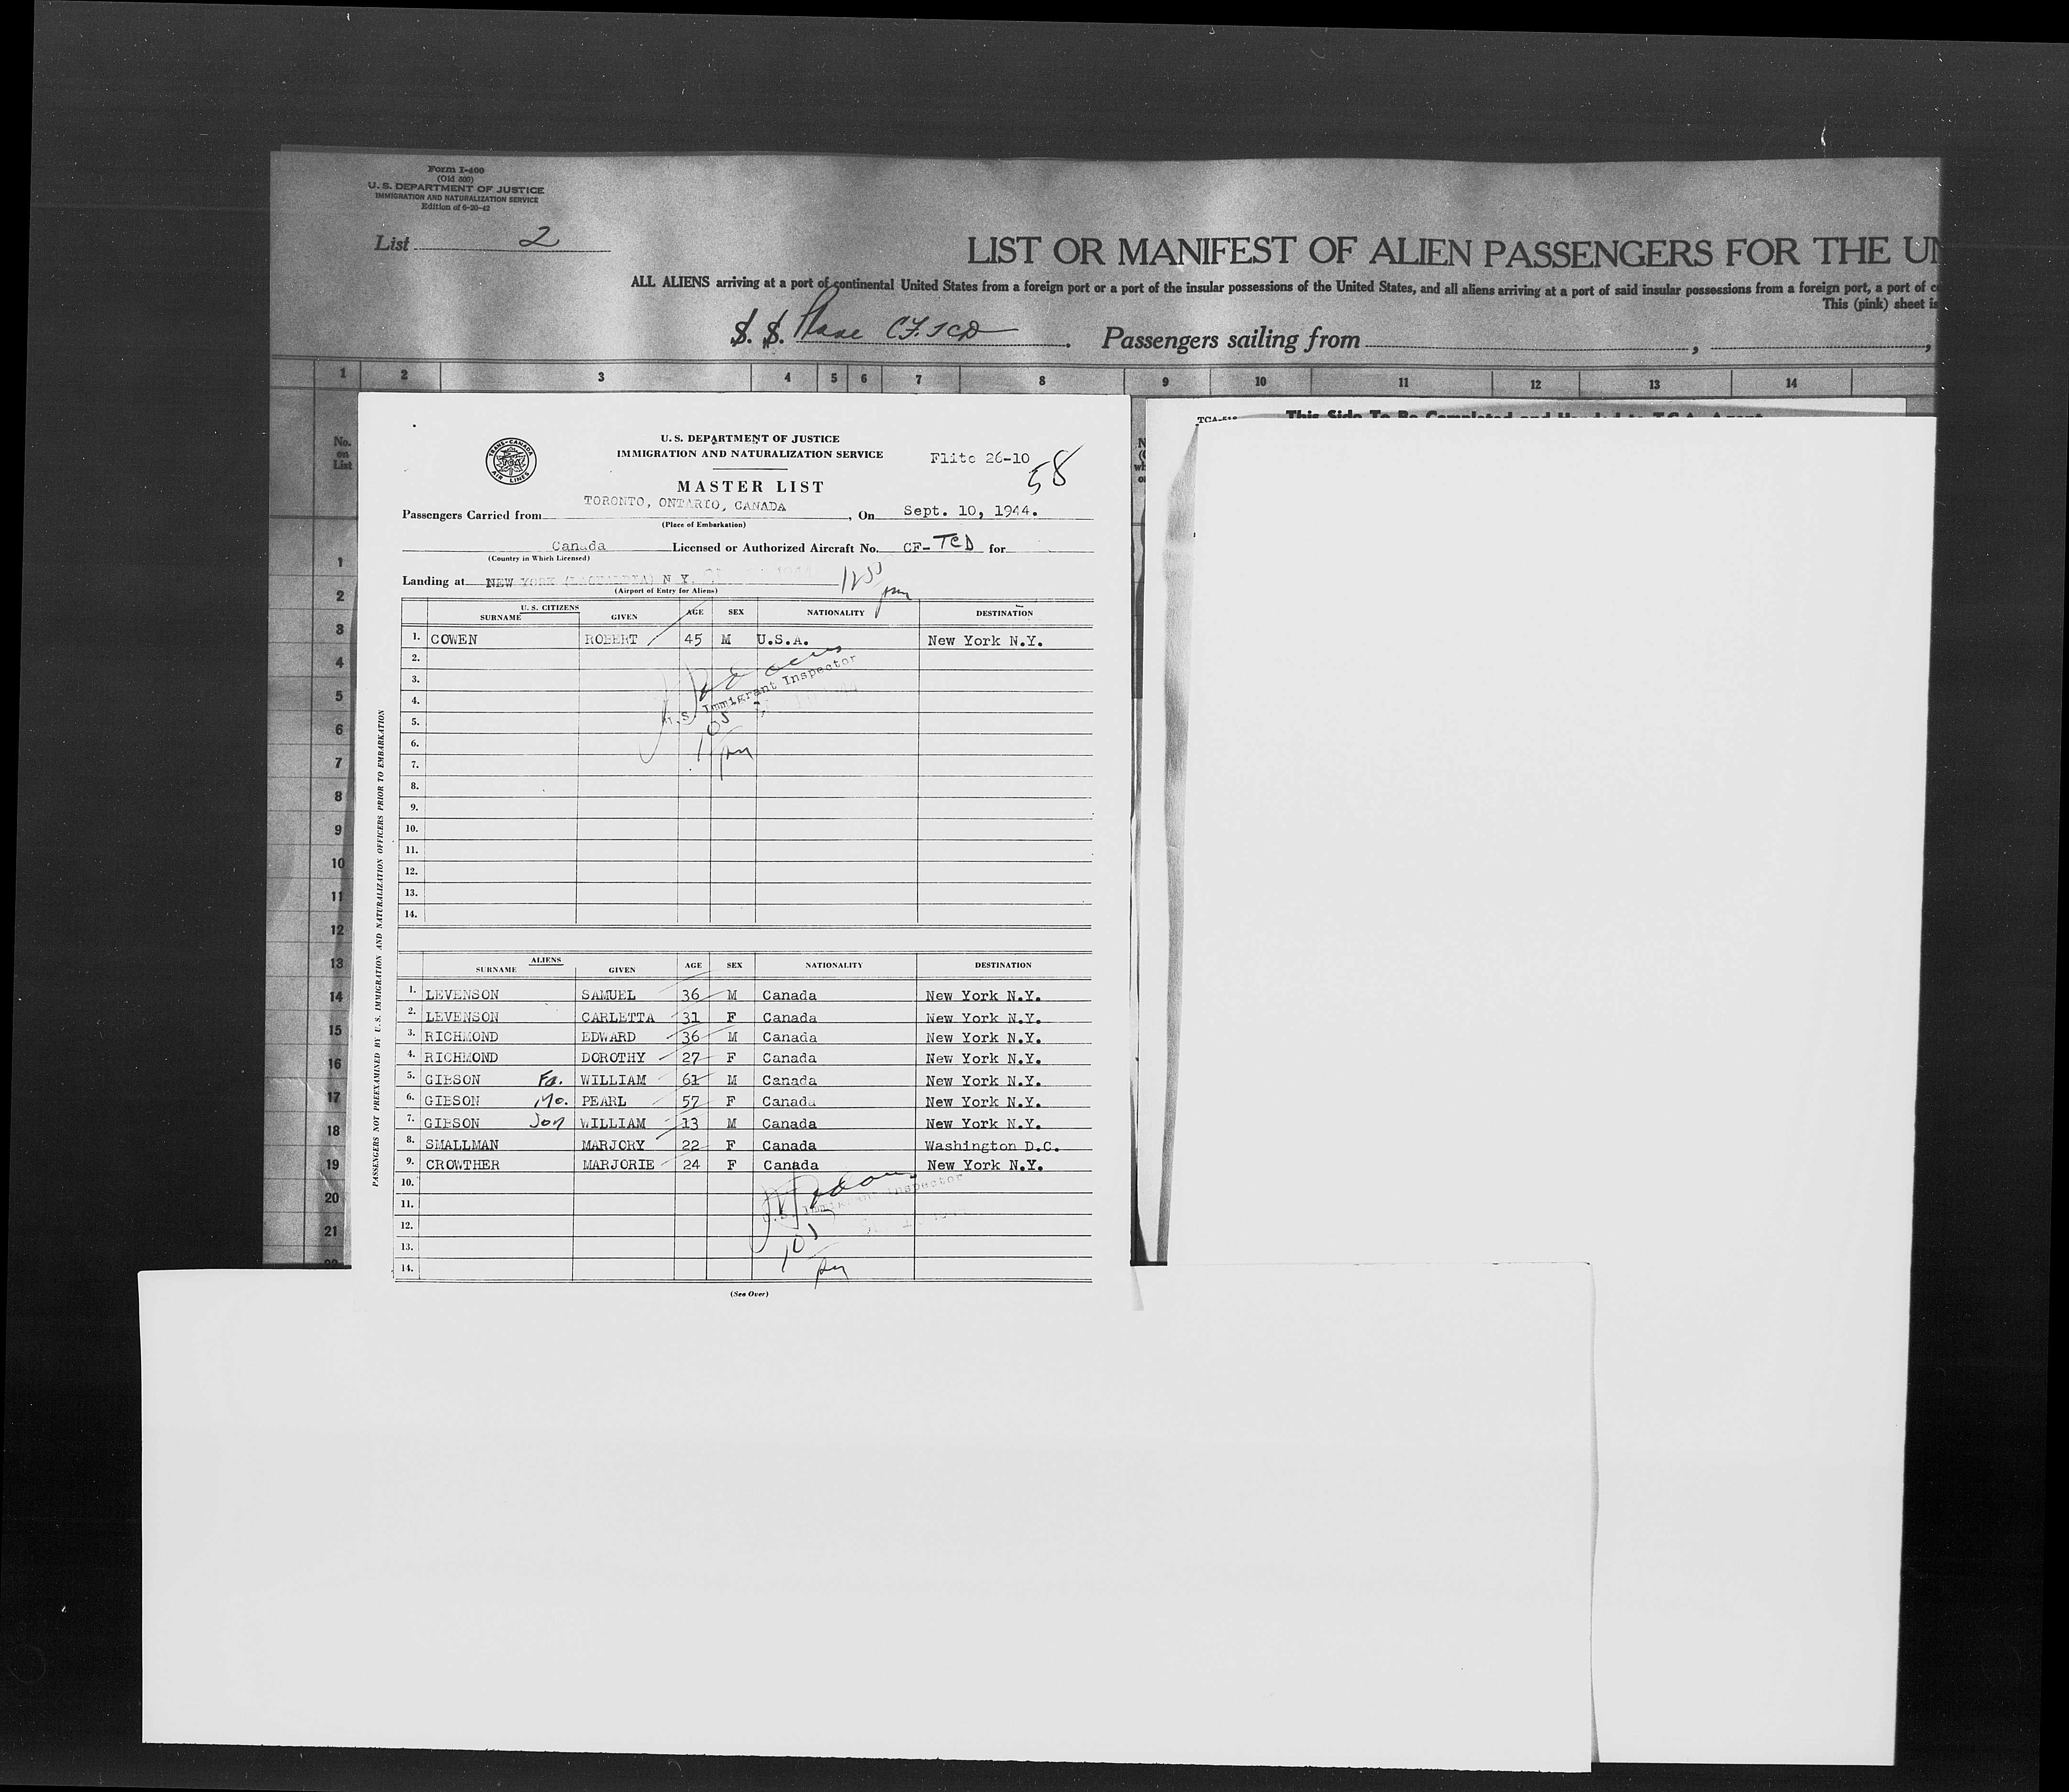 Form I-400
(Old 500)
U. S. DEPARTMENT OF JUSTICE
IMMIGRATION AND NATURALIZATION SERVICE
Edition of 6-20-42
List 2
LIST OR MANIFEST OF ALIEN PASSENGERS FOR THE UN
ALL ALIENS arriving at a port of continental United States from a foreign port or a port of the insular possessions of the United States, and all aliens arriving at a port of said insular possessions from a foreign port, a port of
This (pink) sheet is
S. S. Plane CF.TCD. Passengers sailing from , ,
1 2 3 4 5 6 7 8 9 10 11 12 13 14
No. on List
1
2
3
4
5
6
7
8
9
10
11
12
13
14
15
16
17
18
19
20
21
TCA-518 This Side To Be Completed and Handed to T.C.A. Agent
TRANS-CANADA AIR LINES
U. S. DEPARTMENT OF JUSTICE
IMMIGRATION AND NATURALIZATION SERVICE
Flite 26-10
58
MASTER LIST
Passengers Carried from TORONTO, ONTARIO, CANADA, On Sept. 10, 1944.
(Place of Embarkation)
Canada Licensed or Authorized Aircraft No. CF-TCD for
(Country in Which Licensed)
Landing at NEW YORK (LAGUARDIA) N Y.
(Airport of Entry for Aliens)
1255 pm
U. S. CITIZENS
SURNAME GIVEN AGE SEX NATIONALITY DESTINATION
1. COWEN ROBERT 45 M U.S.A. New York N.Y.
2.
3.
4.
5.
6.
7.
8.
9.
10.
11.
12.
13.
14.
U.S. Immigrant Inspector
105 pm
ALIENS
SURNAME GIVEN AGE SEX NATIONALITY DESTINATION
1. LEVENSON SAMUEL 36 M Canada New York N.Y.
2. LEVENSON CARLETTA 31 F Canada New York N.Y.
3. RICHMOND EDWARD 36 M Canada New York N.Y.
4. RICHMOND DOROTHY 27 F Canada New York N.Y.
5. GIBSON Fa. WILLIAM 61 M Canada New York N.Y.
6. GIBSON Mo. PEARL 57 F Canada New York N.Y.
7. GIBSON Son WILLIAM 13 M Canada New York N.Y.
8. SMALLMAN MARJORY 22 F Canada Washington D.C.
9. CROWTHER MARJORIE 24 F Canada New York N.Y.
10.
11.
12.
13.
14.
U.S. Immigrant Inspector
105 pm
(See Over)
PASSENGERS NOT PREEXAMINED BY U. S. IMMIGRATION AND NATURALIZATION OFFICERS PRIOR TO EMBARKATION